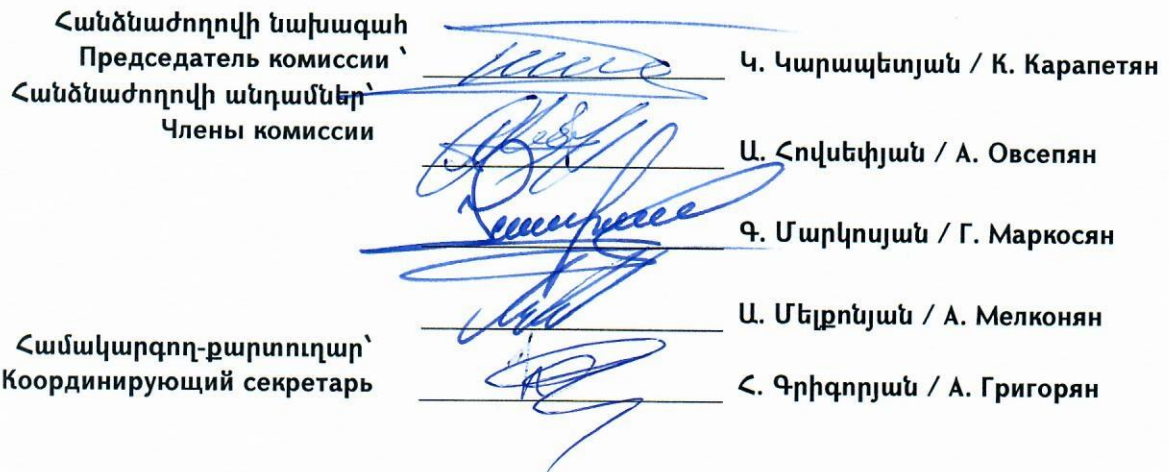 Հանձնաժողովի նախագահ
Председатель комиссии ՝
Կ. Կարապետյան / К. Карапетян
Հանձնաժողովի անդամներ՝
Члены комиссии
Ա. Հովսեփյան / А. Овсепян
Գ. Մարկոսյան / Г. Маркосян
Ա. Մելքոնյան / А. Мелконян
Համակարգող-քարտուղար՝
Координирующий секретарь
Հ. Գրիգորյան / А. Григорян